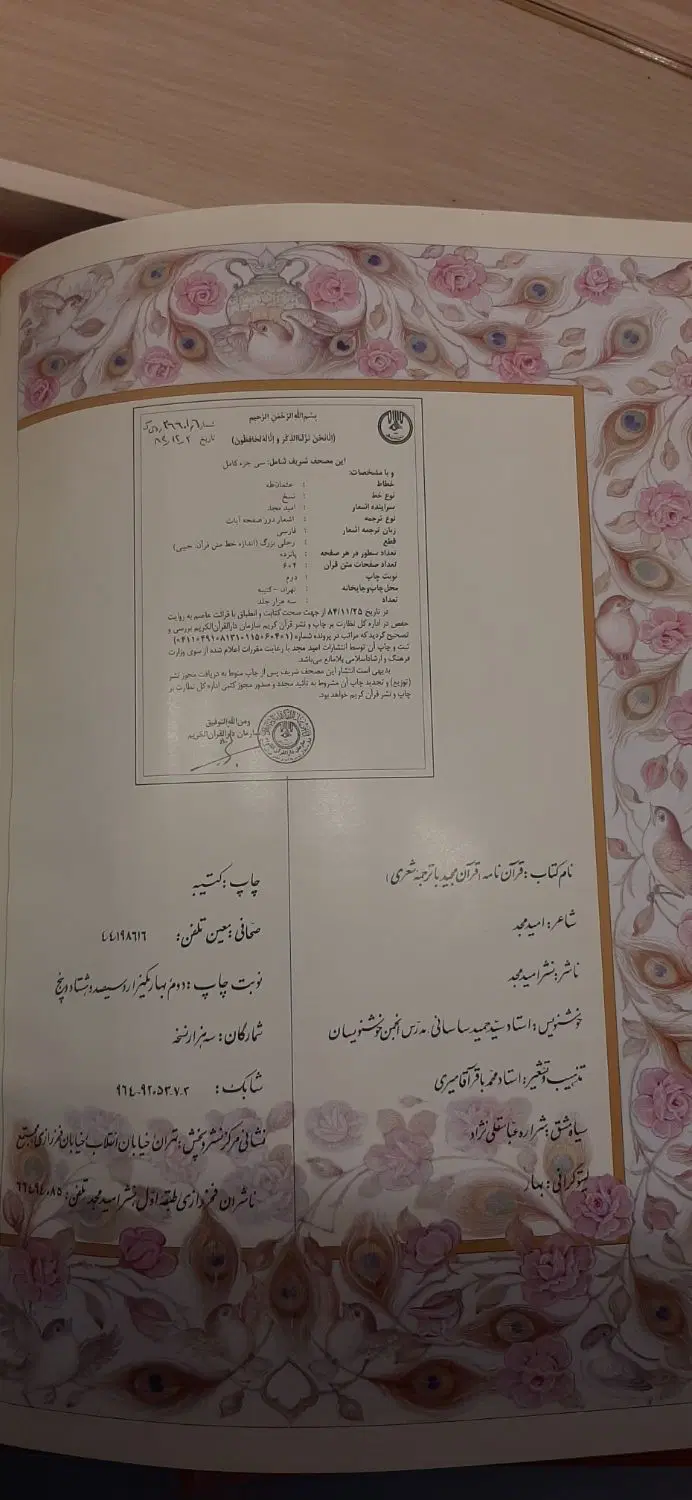 بسم الله الرحمن الرحیم
(انا نحن نزلنا الذکر و انا له لحافظون)
شماره
تاریخ ۸۴،۱۲،۲
این مصحف شریف شامل: سی جزء کامل
و با مشخصات:
خطاط : عثمان طه
نوع خط : نسخ
سراینده اشعار : امید مجد
نوع ترجمه : اشعار دور صفحه آیات
زبان ترجمه اشعار : فارسی
قطع : رحلی بزرگ (اندازه خط متن قرآن: جیبی)
تعداد سطور در هر صفحه : پانزده
تعداد صفحات متن قرآن : ۶۰۴
نوبت چاپ : دوم
محل چاپ و چاپخانه : تهران - کتیبه
تعداد : سه هزار جلد
در تاریخ ۸۴/۱۱/۲۵ از جهت صحت کتابت و انطباق با قرائت عاصم به روایت
حفص در اداره کل نظارت بر چاپ و نشر قرآن کریم سازمان دارالقرآن الکریم بررسی و
تصحیح گردید که مراتب در پرونده شماره
ثبت و چاپ آن توسط انتشارات امید مجد با رعایت مقررات اعلام شده از سوی وزارت
فرهنگ و ارشاد اسلامی بلامانع می‌باشد.
بدیهی است انتشار این مصحف شریف پس از چاپ منوط به دریافت مجوز نشر
(توزیع) و تجدید چاپ آن مشروط به تائید مجدد و صدور مجوز کتبی اداره کل نظارت بر
چاپ و نشر قرآن کریم خواهد بود.
ومن الله التوفیق
سازمان دارالقرآن الکریم
نام کتاب: قرآن نامه (قرآن مجید با ترجمه شعری)
شاعر: امید مجد
ناشر: نشر امید مجد
خوشنویس: استاد سید حمید ساسانی مدرس انجمن خوشنویسان
تذهیب و تشعیر: استاد محمد باقر آقامیری
سیاه مشق: شراره عباسقلی نژاد
لیتوگرافی: بهار
چاپ: کتیبه
صحافی: معین تلفن: ۴۴۱۹۸۶۱۶
نوبت چاپ: دوم بهار یکهزار و سیصد و هشتاد و پنج
شمارگان: سه هزار نسخه
شابک: ۹۶۴-۹۲۰۵۳-۷-۳
نشانی مرکز نشر و پخش: تهران خیابان انقلاب خیابان فخر رازی مجتمع
ناشران فخر رازی طبقه اول نشر امید مجد تلفن: ۶۶۴۹۴۰۸۵